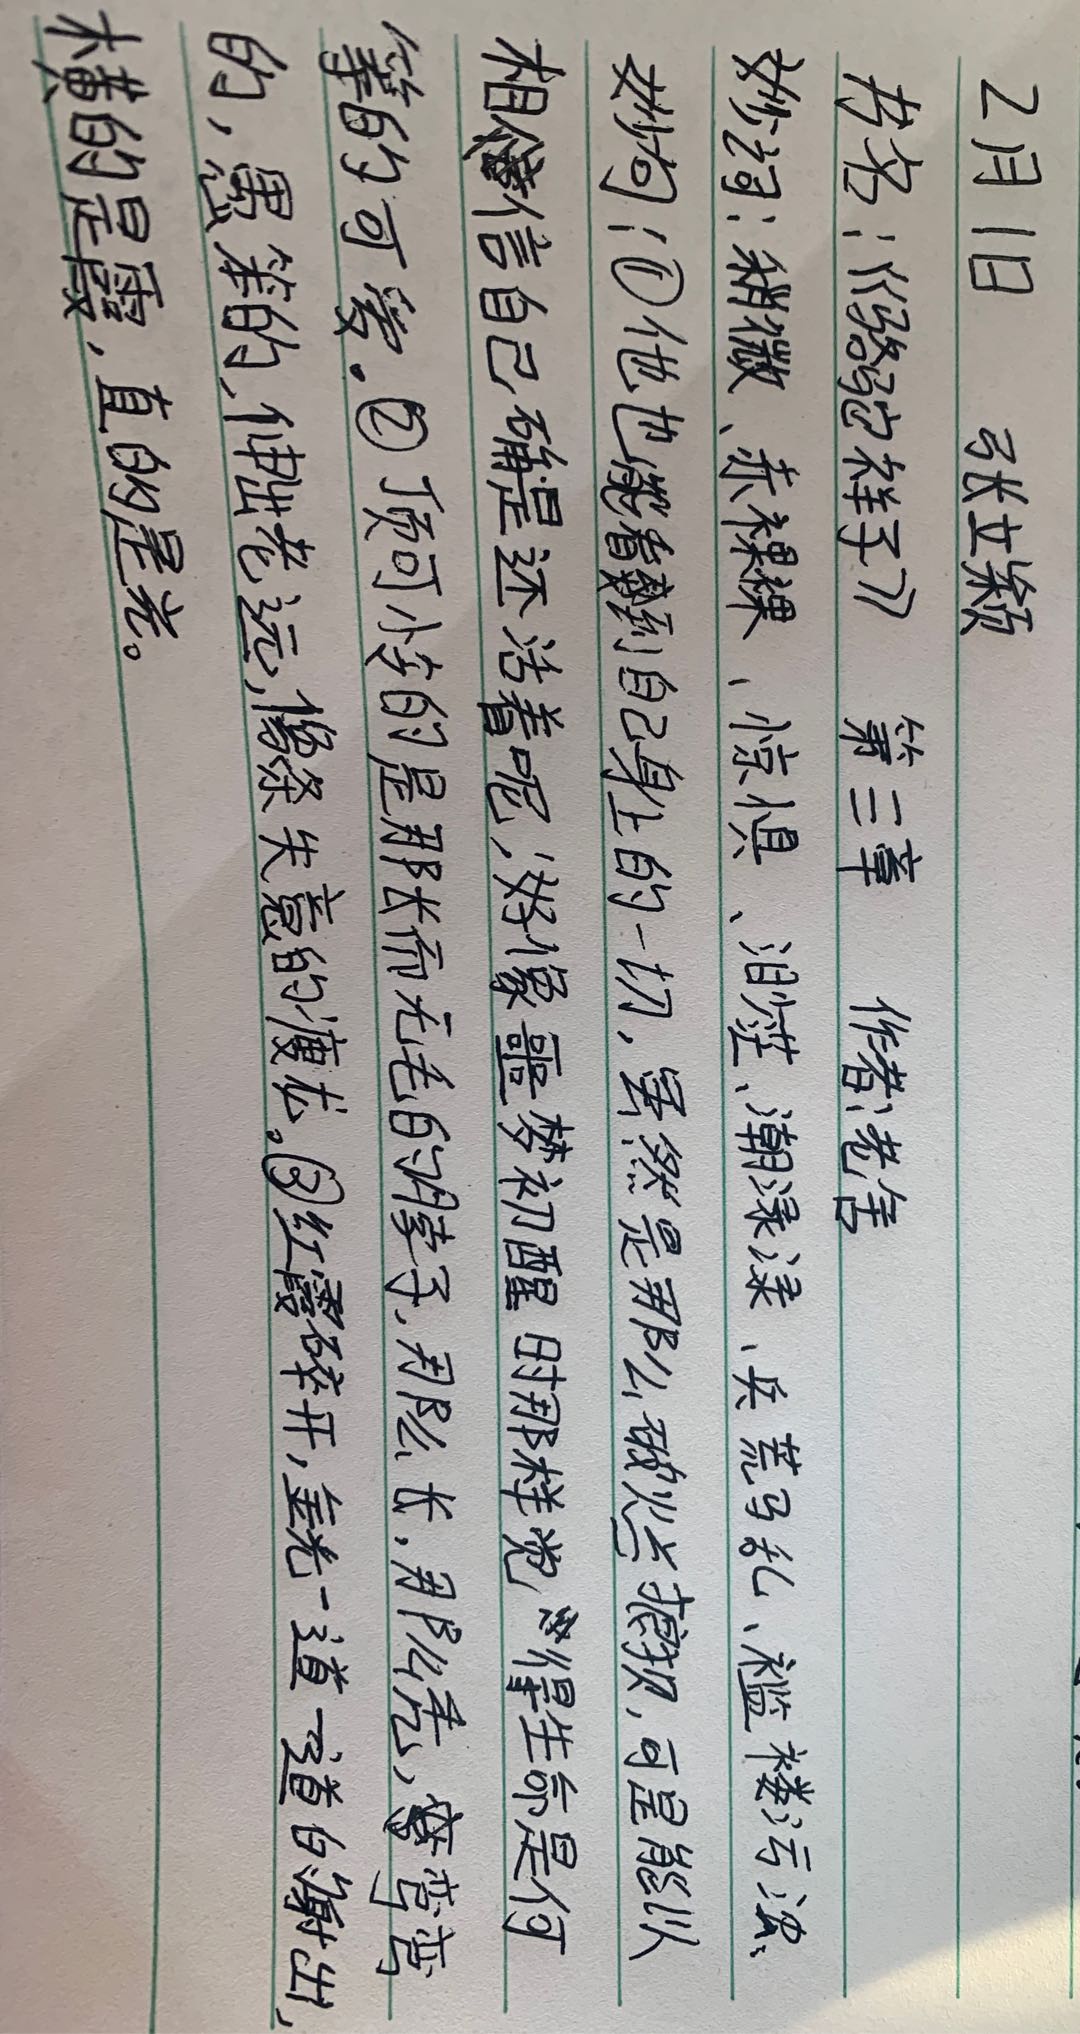 2月1日 张立颖
书名：《骆驼祥子》 第三章 作者：老舍
妙词：稍微、赤裸裸、惊惧、泪茫、潮渌渌、兵荒马乱、褴褛污浊、
妙句：①他也能看到自己身上的一切，虽然是那么破烂狼狈，可是能以
相信自己确是还活着呢；好像噩梦初醒时那样觉得生命是何
等的可爱。②顶可怜的是那长而无毛的脖子，那么长，那么秃，弯弯
的，愚笨的，伸出老远，像条失意的瘦龙。③红霞碎开，金光一道一道的射出，
横的是霞，直的是光。